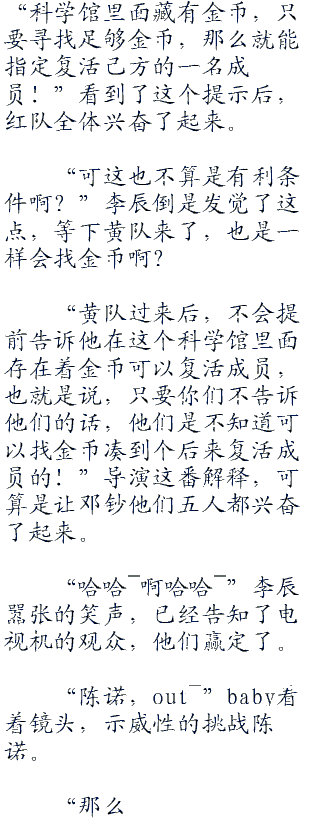 “科学馆里面藏有金币，只
要寻找足够金币，那么就能
指定复活己方的一名成
员！”看到了这个提示后，
红队全体兴奋了起来。
“可这也不算是有利条
件啊？”李辰倒是发觉了这
点，等下黄队来了，也是一
样会找金币啊？
“黄队过来后，不会提
前告诉他在这个科学馆里面
存在着金币可以复活成员，
也就是说，只要你们不告诉
他们的话，他们是不知道可
以找金币凑到个后来复活成
员的！”导演这番解释，可
算是让邓钞他们五人都兴奋
了起来。
“哈哈¯啊哈哈¯”李辰
嚣张的笑声，已经告知了电
视机的观众，他们赢定了。
“陈诺，out¯”baby看
着镜头，示威性的挑战陈
诺。
“那么